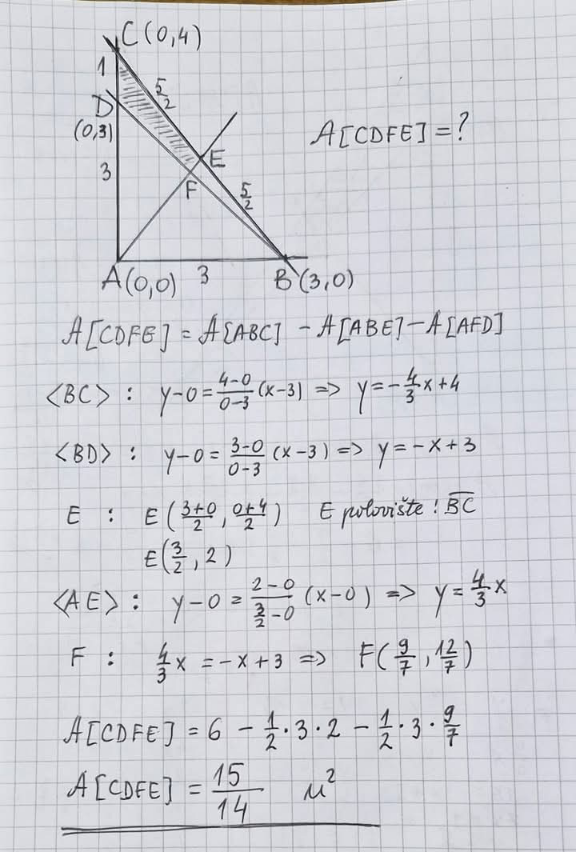 C(0,4)
1
5/2
D
(0,3)
A[CDFE]=?
E
3
F
5/2
A(0,0) 3 B(3,0)
A[CDFE] = A[ABC] - A[ABE] - A[AFD]
<BC> : y-0 = 4-0/0-3 (x-3) => y = -4/3x+4
<BD> : y-0 = 3-0/0-3 (x-3) => y = -x+3
E : E(3+0/2, 0+4/2) E polovište! BC
E(3/2, 2)
<AE> : y-0 = 2-0/(3/2-0) (x-0) => y = 4/3x
F : 4/3x = -x+3 => F(9/7, 12/7)
A[CDFE] = 6 - 1/2·3·2 - 1/2·3·9/7
A[CDFE] = 15/14 u²